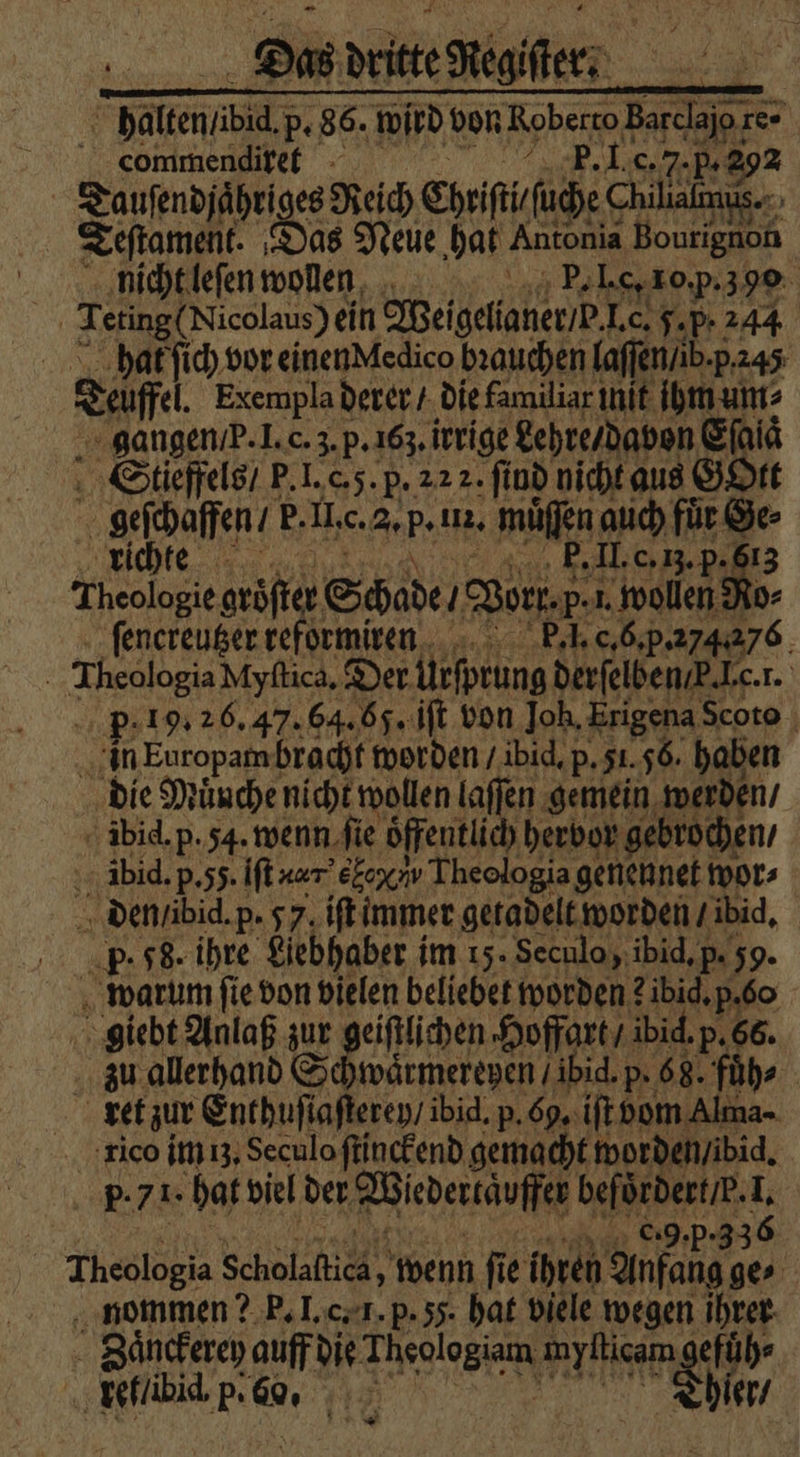 Das dritte Regiſter.
halten/ibid. p. 86. wird von Roberto Barclajo re-
commendiret P. I. c. 7. p. 292
Tauſendjaͤhriges Reich Chriſti/ſuche Chiliaſmus.
Teſtament. Das Neue hat Antonia Bourignon
nicht leſen wollen P. I. c. 10. p. 390
Teting (Nicolaus) ein Weigelianer/P. I. c. 5. p. 244
hat ſich vor einen Medico brauchen laſſen/ib. p. 245
Teuffel. Exempla derer / die familiar mit ihm um-
gangen/P. I. c. 3. p. 163. irrige Lehre/davon Eſaiaͤ
Stieffels/ P. I. c. 5. p. 222. ſind nicht aus GOtt
geſchaffen / P. II. c. 2. p. 112. muͤſſen auch fuͤr Ge-
richte P. II. c. 13. p. 613
Theologie groͤſter Schade / Vorr. p. 1. wollen Ro-
ſencreutzer reformiren P. I. c. 6. p. 274. 276
Theologia Myſtica. Der Urſprung derſelben/P. I. c. 1.
p. 19. 26. 47. 64. 65. iſt von Joh. Erigena Scoto
in Europam bracht worden / ibid. p. 51. 56. haben
die Muͤnche nicht wollen laſſen gemein werden/
ibid. p. 54. wenn ſie oͤffentlich hervor gebrochen/
ibid. p. 55. iſt κατ' ἐξοχὴν Theologia genennet wor-
den/ibid. p. 57. iſt immer getadelt worden / ibid.
p. 58. ihre Liebhaber im 15. Seculo, ibid. p. 59.
warum ſie von vielen beliebet worden? ibid. p. 60
giebt Anlaß zur geiſtlichen Hoffart / ibid. p. 66.
zu allerhand Schwaͤrmereyen / ibid. p. 68. fuͤh-
ret zur Enthuſiaſterey/ ibid. p. 69. iſt vom Alma-
rico im 13. Seculo ſtinckend gemacht worden/ibid.
p. 71. hat viel der Wiedertaͤuffer befoͤrdert/P. I.
c. 9. p. 336
Theologia Scholaſtica, wenn ſie ihren Anfang ge-
nommen? P. I. c. 1. p. 55. hat viele wegen ihrer
Zaͤnckerey auff die Theologiam myſticam gefuͤh-
ret/ibid. p. 60.
Thier/